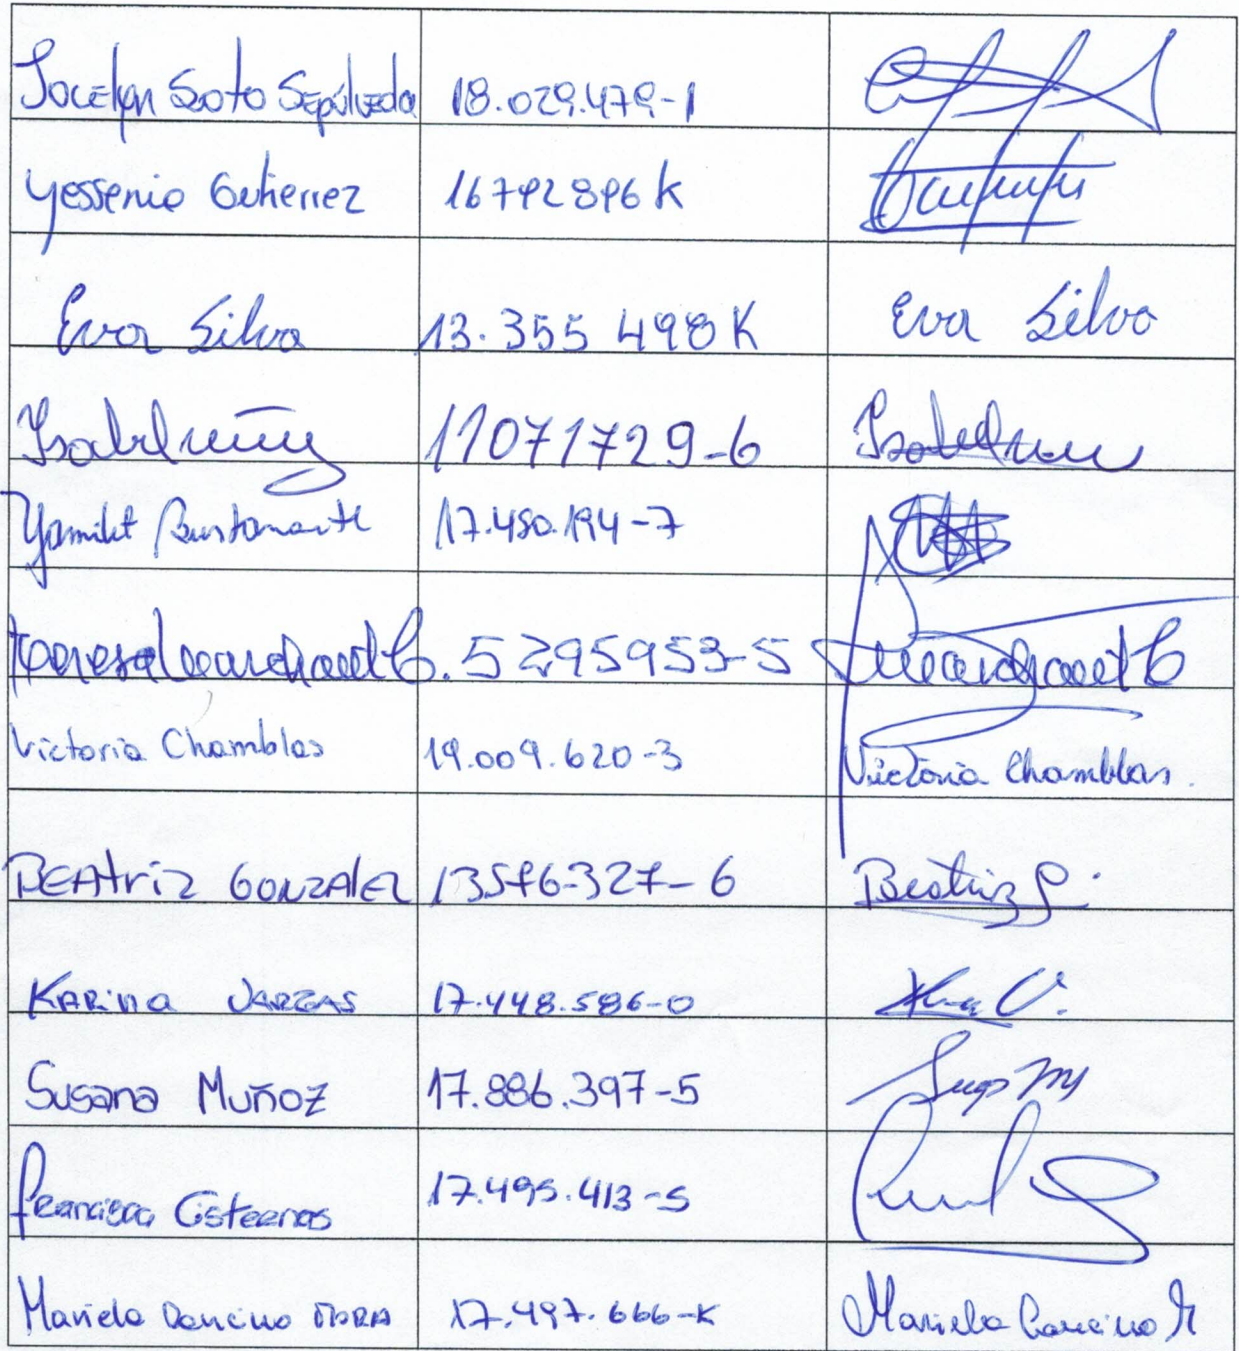 Jocelyn Soto Sepúlveda 18.029.479-1
Yessenia Gutierrez 16792896K
Eva Silva 13.355 498K Eva Silva
Isabel 11071729-6 Isabel
Yamilet Bustamante 17.480.194-7
Teresa Marchant C. 5295953-5 Marchant C
Victoria Chamblas 19.009.620-3 Victoria Chamblas.
BEAtriz GONZAlEZ 13576327-6 Beatriz G.
KARINA VARGAS 17.448.586-0
Susana Muñoz 17.886.397-5
Francisca Cisternas 17.495.413-5
Mariela Cancino MORA 17.497.666-K Mariela Cancino M